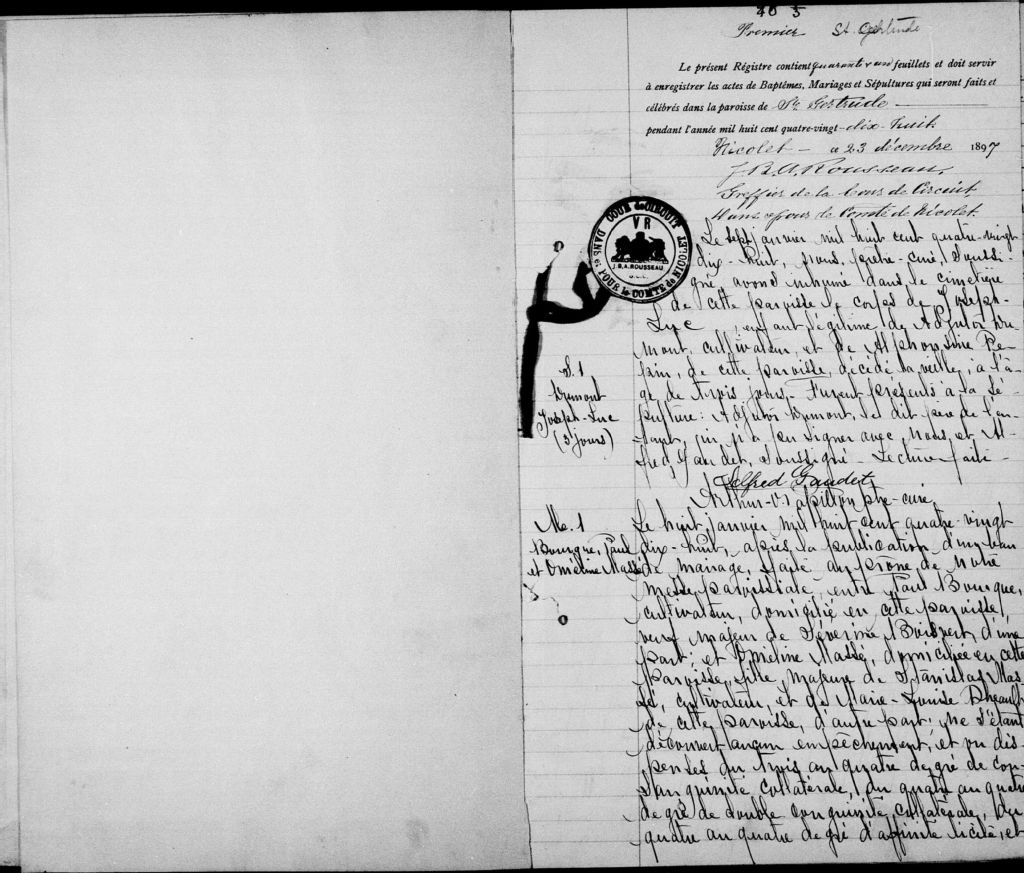 Premier St. Gertrude
Le présent Régistre contient quarante feuillets et doit servir
à enregistrer les actes de Baptêmes, Mariages et Sépultures qui seront faits et
célébrés dans la paroisse de Ste Gertrude
pendant l'année mil huit cent quatre-vingt-dix-huit.
Nicolet - ce 23 décembre 1897
J. B. A. Rousseau,
Greffier de la Cour de Circuit
dans et pour le Comté de Nicolet.
COUR de CIRCUIT
DANS et POUR le COMTÉ de NICOLET
VR
J.B.A. ROUSSEAU
Le sept janvier mil huit cent quatre-vingt
dix-huit, nous, prêtre-curé, soussi-
gné, avons inhumé dans le cimetière
de cette paroisse le corps de Joseph-
Luc, enfant légitime de Adjutor Du
mont, cultivateur, et de Alphonsine Pe-
pin, de cette paroisse, décédé la veille, à l'â-
ge de trois jours. Furent présents à la sé-
pulture: Adjutor Dumont, le dit père de l'en-
fant, qui n'a pu signer avec nous, et Al-
fred Gaudet, soussigné - Lecture faite -
Alfred Gaudet
Arthur Papillon ptre-curé
S. 1
Dumont
Joseph-Luc
(3 jours)
M. 1
Bourque, Paul
et Emeline Massé
Le huit janvier mil huit cent quatre-vingt
dix-huit, après la publication d'un ban
de mariage, faite au prône de notre
messe paroissiale, entre Paul Bourque,
cultivateur, domicilié en cette paroisse,
veuf majeur de Séverine Boisvert, d'une
part; et Emeline Massé, domiciliée en cette
paroisse, fille majeure de Stanislas Mas-
sé, cultivateur, et de Marie-Louise Rheault
de cette paroisse, d'autre part; ne s'étant
découvert aucun empêchement, et vu dis-
penses du trois au quatre degré de con-
sanguinité collatérale, du quatre au quatre
degré de double consanguinité collatérale, du
quatre au quatre degré d'affinité licite, et